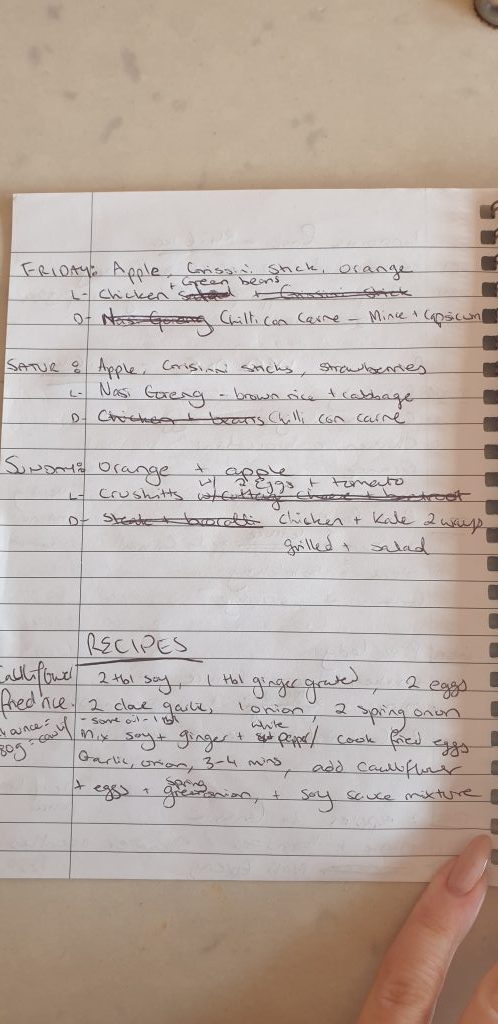 FRIDAY: Apple, Grissini stick, orange
+ Green beans
L- Chicken salad + Grissini stick
D- Nasi Goreng Chilli con carne - Mince + Capsicum
SATUR: Apple, Grisinni sticks, strawberries
L- Nasi Goreng - brown rice + cabbage
D- Chicken + beans Chilli con carne
SUNDAY: orange + apple
w/ 2 Eggs + tomato
L- Cruskitts w/ Cottage cheese + beetroot
D- Steak + brocolli chicken + Kale 2 ways
grilled + salad
RECIPES
Calliflower 2 tbl soy, 1 tbl ginger grated, 2 eggs
fried rice. 2 clove garlic, 1 onion, 2 spring onion
- some oil - 1 tbl white
Mix soy + ginger + pepper / cook fried eggs
80g = cauli
Garlic, onion, 3-4 mins, add Cauliflower
spring
+ eggs + green onion, + soy sauce mixture